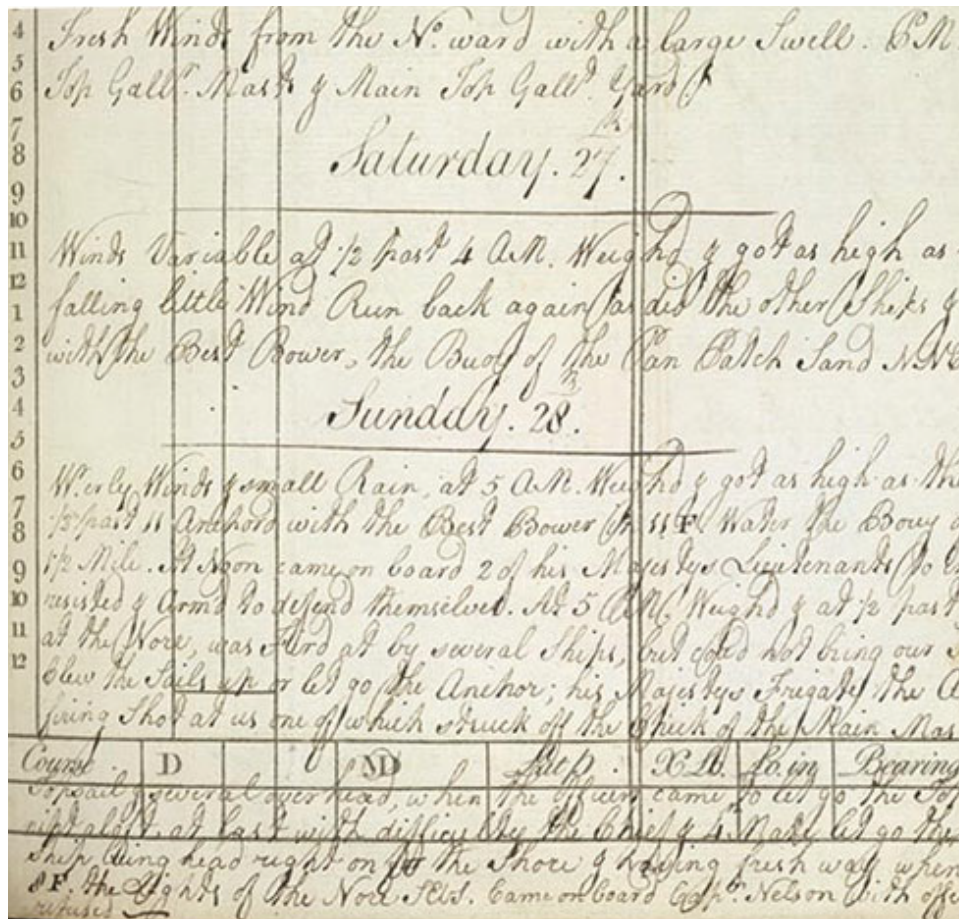 Fresh Winds from the No. ward with a large Swell. P.M.
Top Gallt. Masts & Main Top Gallt. Yard
Saturday. 27th.
Winds Variable at 1/2 past 4 A.M. Weighd & got as high as
falling little Wind Run back again as did the other Ships &
with the Best Bower, the Buoy of the Pan Patch Sand NNE
Sunday. 28th.
W.erly Winds & small Rain, at 5 A.M. Weighd & got as high as the
1/2 past 11 Anchord with the Best Bower in 11 F. Water the Bouy
1 1/2 Mile. At Noon came on board 2 of his Majestys Lieutenants to
resisted & Armd to defend themselves. At 5 P.M. Weighd & at 1/2 past
at the Nore, was Fird at by several Ships, but coud not bring our
blew the Sails up or let go the Anchor; his Majestys Frigate the
firing Shot at us one of which struck off the Cheek of the Main Mas
Course D MD Lat D. X Lo. Lo. in Bearing
Topsail & several overhead, when the Officers came to let go the Top
at last with difficulty the Chief & 4 Mate let go the
Ship being head right on for the Shore & having fresh way when
8 F. the Lights of the Nore Came on board Capt. Nelson with offi
refused
4
5
6
7
8
9
10
11
12
1
2
3
4
5
6
7
8
9
10
11
12